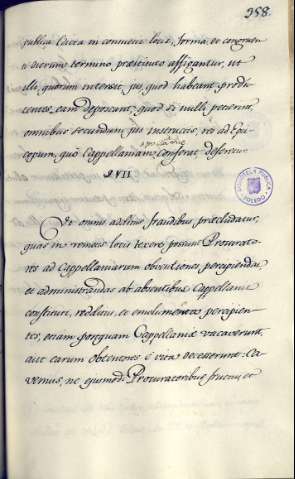 358.
publica Edicta in consuetis locis, forma, et congruen
ti dierum termino præstituto affigantur, ut
illi, quorum interest, jus, quod habeant, prodt
centes, eam deposcant; quod si nulli petierint
omnibus secundum jus instructis, res ad Epis
copum, quò Cappellaniam conferat, deferetur
XVII
Ut omnis aditus fraudibus præcludatur,
quas in remotis locis texere possunt Procurato
res ad Cappellaniarum obventiones percipiendas,
et administrandas ab absentibus Cappellanis
constituti, redditus, et emolumenta percipien
tes, etiam postquam Cappellaniæ vacaverunt,
aut earum obtentores è vita decesserunt: Ca
vemus, ne ejusmodi Procuratoribus fructus, et
BIBLIOTECA PUBLICA
TOLEDO